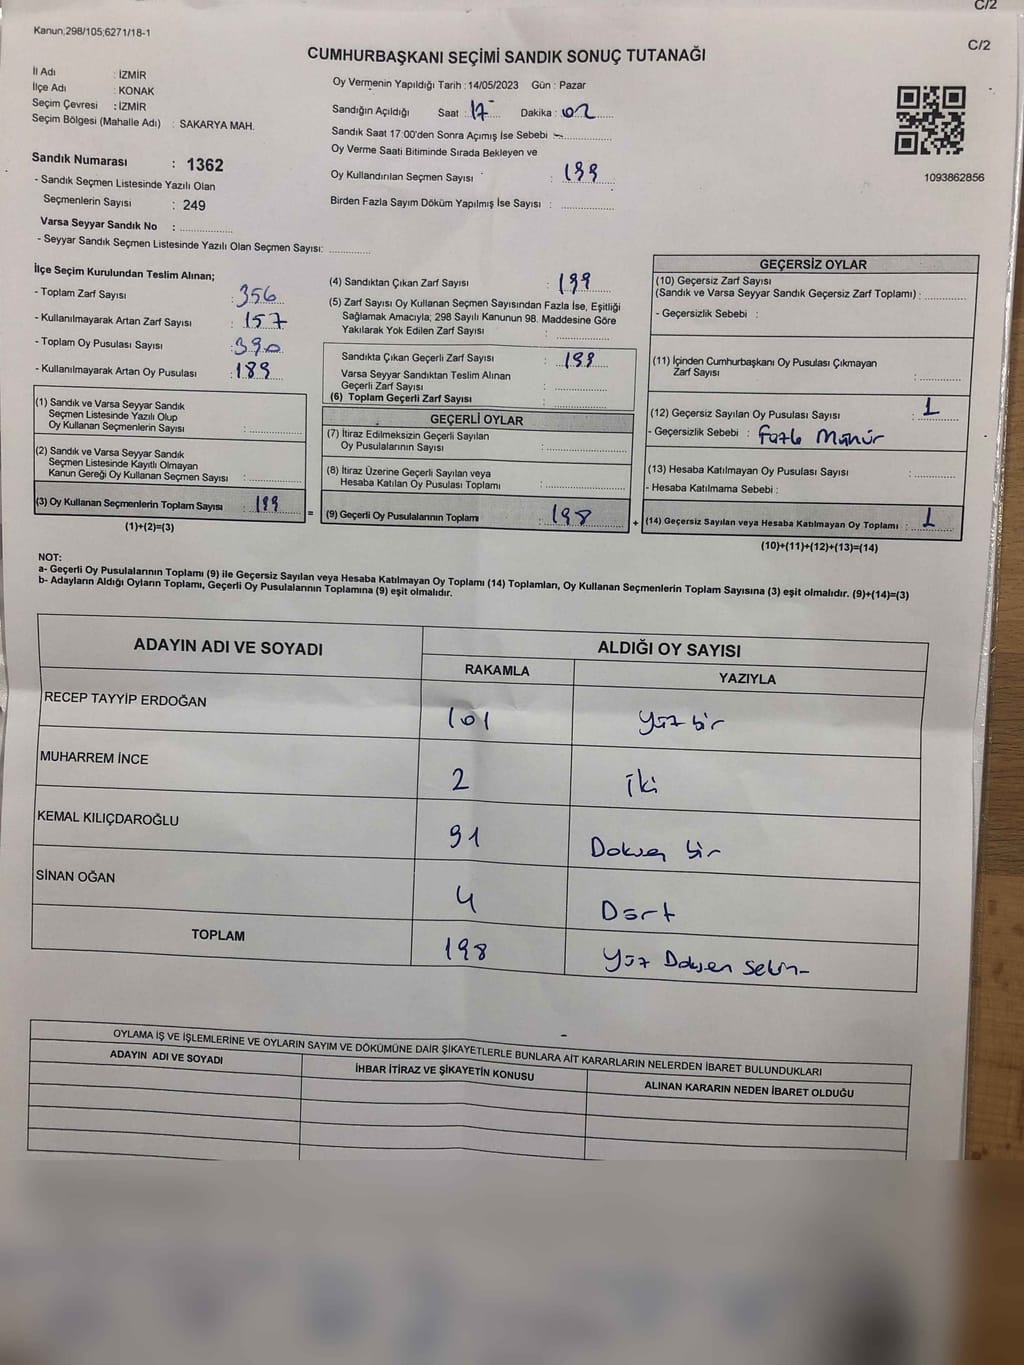 C/2
Kanun;298/105;6271/18-1
C/2
CUMHURBAŞKANI SEÇİMİ SANDIK SONUÇ TUTANAĞI
İl Adı : İZMİR
İlçe Adı : KONAK
Seçim Çevresi : İZMİR
Seçim Bölgesi (Mahalle Adı) : SAKARYA MAH.
Sandık Numarası : 1362
- Sandık Seçmen Listesinde Yazılı Olan
Seçmenlerin Sayısı : 249
Varsa Seyyar Sandık No :
- Seyyar Sandık Seçmen Listesinde Yazılı Olan Seçmen Sayısı:
Oy Vermenin Yapıldığı Tarih : 14/05/2023 Gün : Pazar
Sandığın Açıldığı Saat : 17 Dakika : 02
Sandık Saat 17:00'den Sonra Açımış İse Sebebi -
Oy Verme Saati Bitiminde Sırada Bekleyen ve
Oy Kullandırılan Seçmen Sayısı : 199
Birden Fazla Sayım Döküm Yapılmış İse Sayısı :
1093862856
İlçe Seçim Kurulundan Teslim Alınan;
- Toplam Zarf Sayısı : 356
- Kullanılmayarak Artan Zarf Sayısı : 157
- Toplam Oy Pusulası Sayısı : 390
- Kullanılmayarak Artan Oy Pusulası : 189
(1) Sandık ve Varsa Seyyar Sandık
Seçmen Listesinde Yazılı Olup
Oy Kullanan Seçmenlerin Sayısı :
(2) Sandık ve Varsa Seyyar Sandık
Seçmen Listesinde Kayıtlı Olmayan
Kanun Gereği Oy Kullanan Seçmen Sayısı :
(3) Oy Kullanan Seçmenlerin Toplam Sayısı : 199
(1)+(2)=(3)
=
(4) Sandıktan Çıkan Zarf Sayısı : 199
(5) Zarf Sayısı Oy Kullanan Seçmen Sayısından Fazla İse, Eşitliği
Sağlamak Amacıyla; 298 Sayılı Kanunun 98. Maddesine Göre
Yakılarak Yok Edilen Zarf Sayısı :
Sandıkta Çıkan Geçerli Zarf Sayısı : 199
Varsa Seyyar Sandıktan Teslim Alınan
Geçerli Zarf Sayısı :
(6) Toplam Geçerli Zarf Sayısı :
GEÇERLİ OYLAR
(7) İtiraz Edilmeksizin Geçerli Sayılan
Oy Pusulalarının Sayısı :
(8) İtiraz Üzerine Geçerli Sayılan veya
Hesaba Katılan Oy Pusulası Toplamı :
(9) Geçerli Oy Pusulalarının Toplamı : 198
+
GEÇERSİZ OYLAR
(10) Geçersiz Zarf Sayısı
(Sandık ve Varsa Seyyar Sandık Geçersiz Zarf Toplamı) :
- Geçersizlik Sebebi :
(11) İçinden Cumhurbaşkanı Oy Pusulası Çıkmayan
Zarf Sayısı :
(12) Geçersiz Sayılan Oy Pusulası Sayısı : 1
- Geçersizlik Sebebi : Fazla Mühür
(13) Hesaba Katılmayan Oy Pusulası Sayısı :
- Hesaba Katılmama Sebebi :
(14) Geçersiz Sayılan veya Hesaba Katılmayan Oy Toplamı : 1
(10)+(11)+(12)+(13)=(14)
NOT:
a- Geçerli Oy Pusulalarının Toplamı (9) ile Geçersiz Sayılan veya Hesaba Katılmayan Oy Toplamı (14) Toplamları, Oy Kullanan Seçmenlerin Toplam Sayısına (3) eşit olmalıdır. (9)+(14)=(3)
b- Adayların Aldığı Oyların Toplamı, Geçerli Oy Pusulalarının Toplamına (9) eşit olmalıdır.
ADAYIN ADI VE SOYADI ALDIĞI OY SAYISI
RAKAMLA YAZIYLA
RECEP TAYYİP ERDOĞAN 101 Yüz bir
MUHARREM İNCE 2 İki
KEMAL KILIÇDAROĞLU 91 Doksan bir
SİNAN OĞAN 4 Dört
TOPLAM 198 Yüz Doksen Sekiz
OYLAMA İŞ VE İŞLEMLERİNE VE OYLARIN SAYIM VE DÖKÜMÜNE DAİR ŞİKAYETLERLE BUNLARA AİT KARARLARIN NELERDEN İBARET BULUNDUKLARI
ADAYIN ADI VE SOYADI İHBAR İTİRAZ VE ŞİKAYETİN KONUSU ALINAN KARARIN NEDEN İBARET OLDUĞU